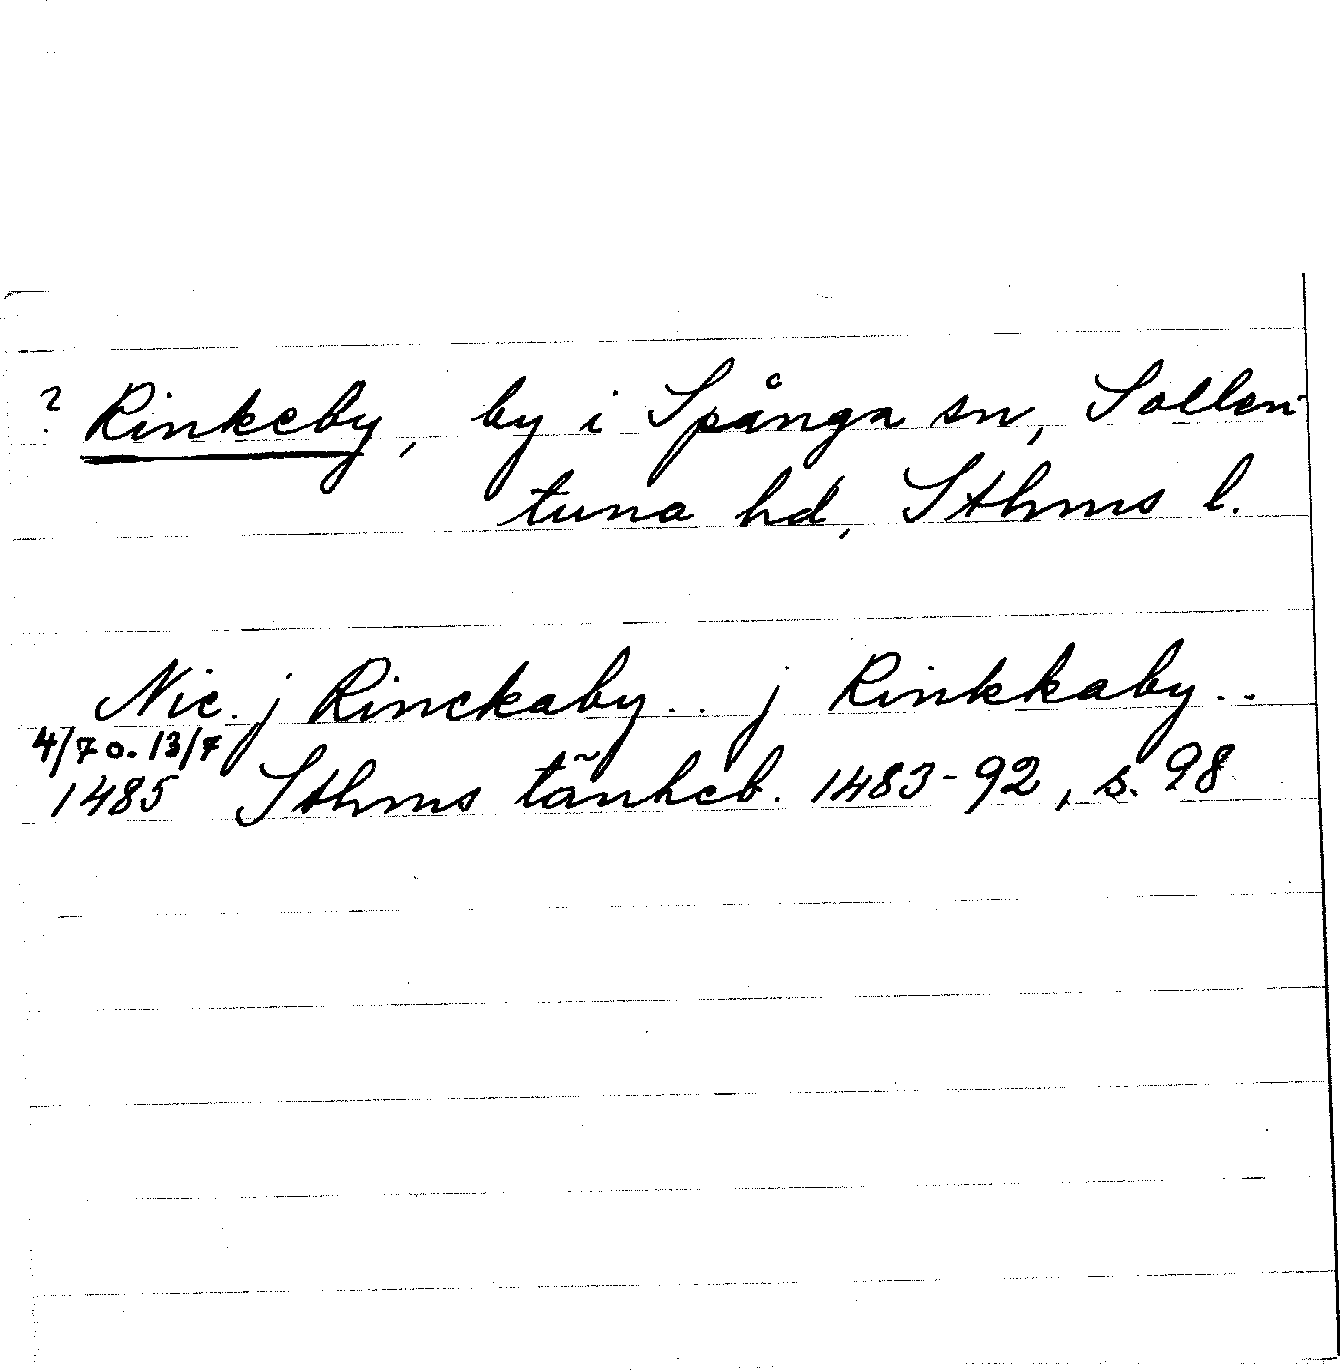 ? Rinkeby, by i Spånga sn, Sollen-
tuna hd, Sthms l.
Nic. j Rinckaby.. j Rinkkaby..
4/7 o. 13/7
1485 Sthms tänkeb. 1483-92, s. 98